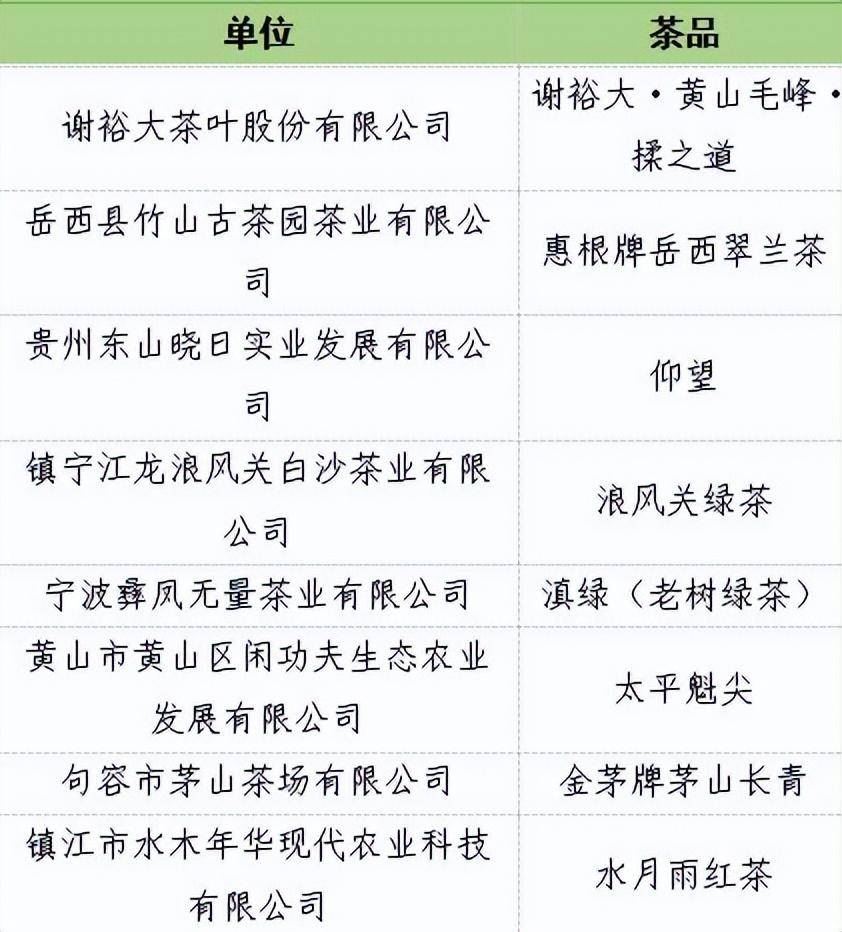 单位 茶品
谢裕大茶叶股份有限公司
谢裕大·黄山毛峰·
揉之道
岳西县竹山古茶园茶业有限公
司
惠根牌岳西翠兰茶
贵州东山晓日实业发展有限公
司
仰望
镇宁江龙浪风关白沙茶业有限
公司
浪风关绿茶
宁波彝凤无量茶业有限公司
滇绿（老树绿茶）
黄山市黄山区闲功夫生态农业
发展有限公司
太平魁尖
句容市茅山茶场有限公司
金茅牌茅山长青
镇江市水木年华现代农业科技
有限公司
水月雨红茶